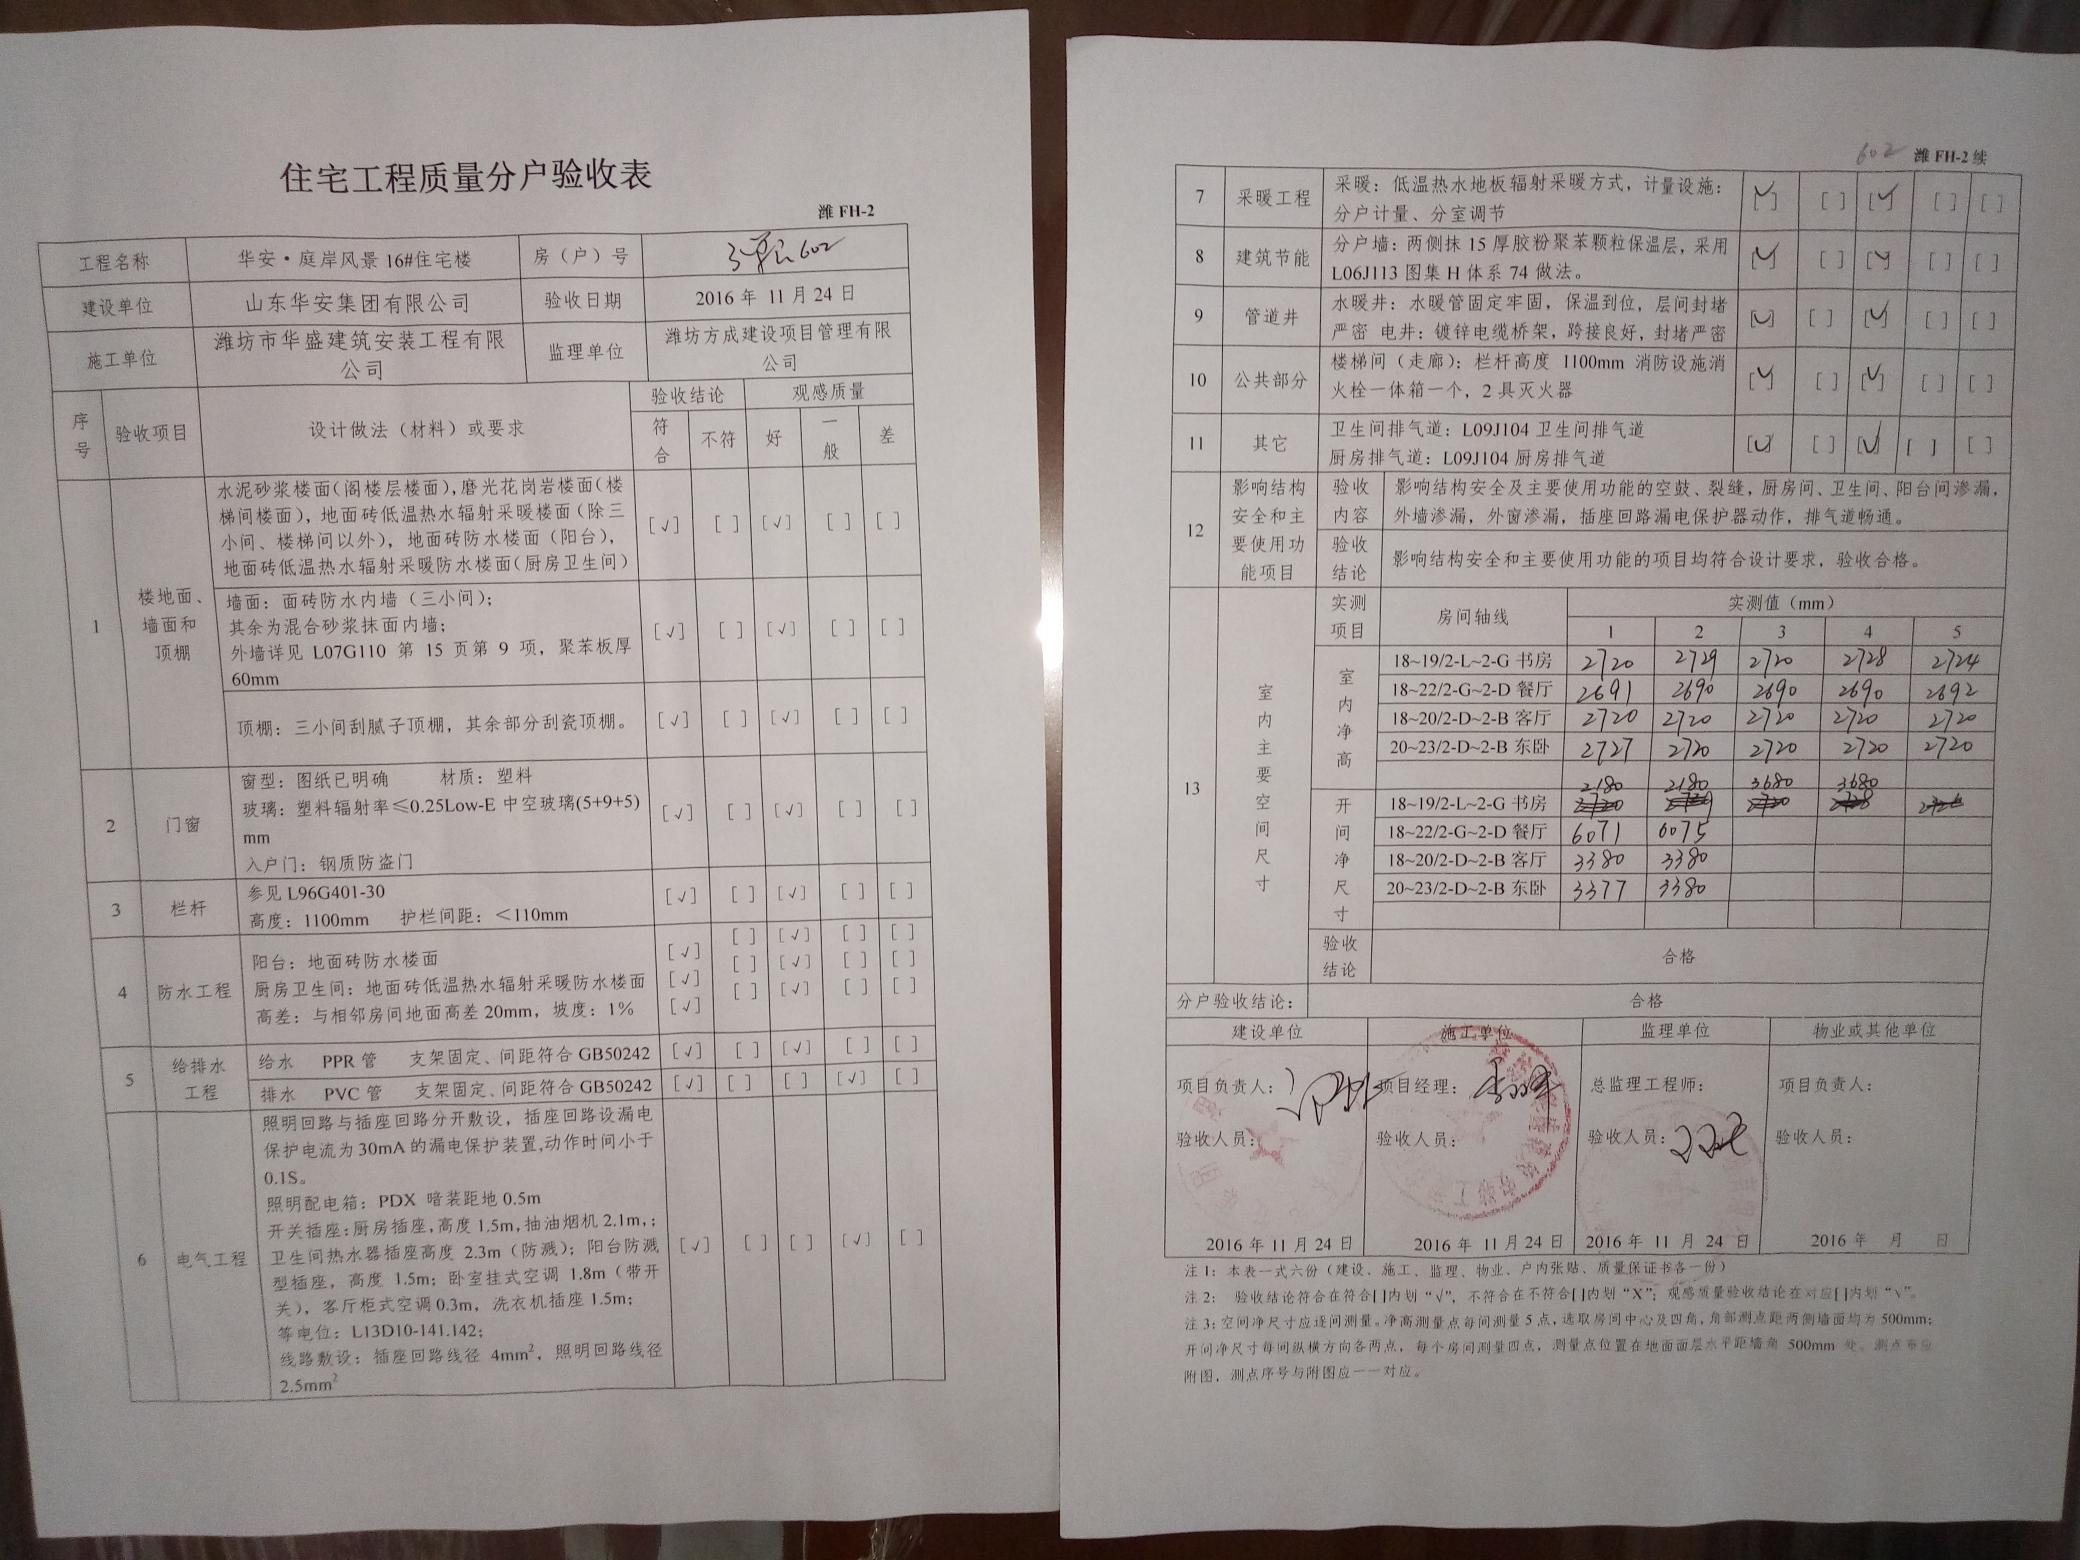 住宅工程质量分户验收表
潍 FH-2
工程名称 华安·庭岸风景 16#住宅楼 房（户）号 3单元602
建设单位 山东华安集团有限公司 验收日期 2016 年 11 月 24 日
施工单位 潍坊市华盛建筑安装工程有限公司 监理单位 潍坊方成建设项目管理有限公司
序号 验收项目 设计做法（材料）或要求 验收结论 观感质量
符合 不符 好 一般 差
1 楼地面、墙面和顶棚
水泥砂浆楼面(阁楼层楼面),磨光花岗岩楼面(楼
梯间楼面)，地面砖低温热水辐射采暖楼面(除三
小间、楼梯间以外)，地面砖防水楼面（阳台），
地面砖低温热水辐射采暖防水楼面(厨房卫生间)
[√] [ ] [√] [ ] [ ]
墙面：面砖防水内墙（三小间）；
其余为混合砂浆抹面内墙；
外墙详见 L07G110 第 15 页第 9 项，聚苯板厚
60mm
[√] [ ] [√] [ ] [ ]
顶棚：三小间刮腻子顶棚，其余部分刮瓷顶棚。 [√] [ ] [√] [ ] [ ]
2 门窗
窗型：图纸已明确 材质：塑料
玻璃：塑料辐射率≤0.25Low-E 中空玻璃(5+9+5)
mm
入户门：钢质防盗门
[√] [ ] [√] [ ] [ ]
3 栏杆
参见 L96G401-30
高度：1100mm 护栏间距：＜110mm
[√] [ ] [√] [ ] [ ]
4 防水工程
阳台：地面砖防水楼面 [√] [ ] [√] [ ] [ ]
厨房卫生间：地面砖低温热水辐射采暖防水楼面 [√] [ ] [√] [ ] [ ]
高差：与相邻房间地面高差 20mm，坡度：1% [√] [ ] [√] [ ] [ ]
5 给排水工程
给水 PPR 管 支架固定、间距符合 GB50242 [√] [ ] [√] [ ] [ ]
排水 PVC 管 支架固定、间距符合 GB50242 [√] [ ] [ ] [√] [ ]
6 电气工程
照明回路与插座回路分开敷设，插座回路设漏电
保护电流为 30mA 的漏电保护装置,动作时间小于
0.1S。
照明配电箱：PDX 暗装距地 0.5m
开关插座:厨房插座,高度 1.5m,抽油烟机 2.1m,；
卫生间热水器插座高度 2.3m（防溅）；阳台防溅
型插座，高度 1.5m；卧室挂式空调 1.8m（带开
关），客厅柜式空调 0.3m，洗衣机插座 1.5m；
等电位：L13D10-141.142；
线路敷设：插座回路线径 4mm²，照明回路线径
2.5mm²
[√] [ ] [ ] [√] [ ]
602 潍 FH-2 续
7 采暖工程
采暖：低温热水地板辐射采暖方式，计量设施：
分户计量、分室调节
[√] [ ] [√] [ ] [ ]
8 建筑节能
分户墙：两侧抹 15 厚胶粉聚苯颗粒保温层，采用
L06J113 图集 H 体系 74 做法。
[√] [ ] [√] [ ] [ ]
9 管道井
水暖井：水暖管固定牢固，保温到位，层间封堵
严密 电井：镀锌电缆桥架，跨接良好，封堵严密
[√] [ ] [√] [ ] [ ]
10 公共部分
楼梯间（走廊）：栏杆高度 1100mm 消防设施消
火栓一体箱一个，2 具灭火器
[√] [ ] [√] [ ] [ ]
11 其它
卫生间排气道：L09J104 卫生间排气道
厨房排气道：L09J104 厨房排气道
[√] [ ] [√] [ ] [ ]
12 影响结构安全和主要使用功能项目
验收内容
影响结构安全及主要使用功能的空鼓、裂缝，厨房间、卫生间、阳台间渗漏，
外墙渗漏，外窗渗漏，插座回路漏电保护器动作，排气道畅通。
验收结论 影响结构安全和主要使用功能的项目均符合设计要求，验收合格。
13 室内主要空间尺寸
实测项目 房间轴线 实测值（mm）
1 2 3 4 5
室内净高
18~19/2-L~2-G 书房 2720 2729 2720 2728 2724
18~22/2-G~2-D 餐厅 2691 2690 2690 2690 2692
18~20/2-D~2-B 客厅 2720 2720 2720 2720 2720
20~23/2-D~2-B 东卧 2727 2720 2720 2720 2720
开间净尺寸
2180 2180 3680 3680
18~19/2-L~2-G 书房
18~22/2-G~2-D 餐厅 6071 6075
18~20/2-D~2-B 客厅 3380 3380
20~23/2-D~2-B 东卧 3377 3380
验收结论 合格
分户验收结论： 合格
建设单位 施工单位 监理单位 物业或其他单位
项目负责人： 项目经理： 总监理工程师： 项目负责人：
验收人员： 验收人员： 验收人员： 验收人员：
2016 年 11 月 24 日 2016 年 11 月 24 日 2016 年 11 月 24 日 2016 年 月 日
注 1：本表一式六份（建设、施工、监理、物业、户内张贴、质量保证书各一份）
注 2： 验收结论符合在符合[ ]内划“√”，不符合在不符合[ ]内划“X”；观感质量验收结论在对应[ ]内划“√”。
注 3：空间净尺寸应逐间测量。净高测量点每间测量 5 点，选取房间中心及四角，角部测点距两侧墙面均为 500mm；
开间净尺寸每间纵横方向各两点，每个房间测量四点，测量点位置在地面面层水平距墙角 500mm 处。测点布应
附图，测点序号与附图应一一对应。